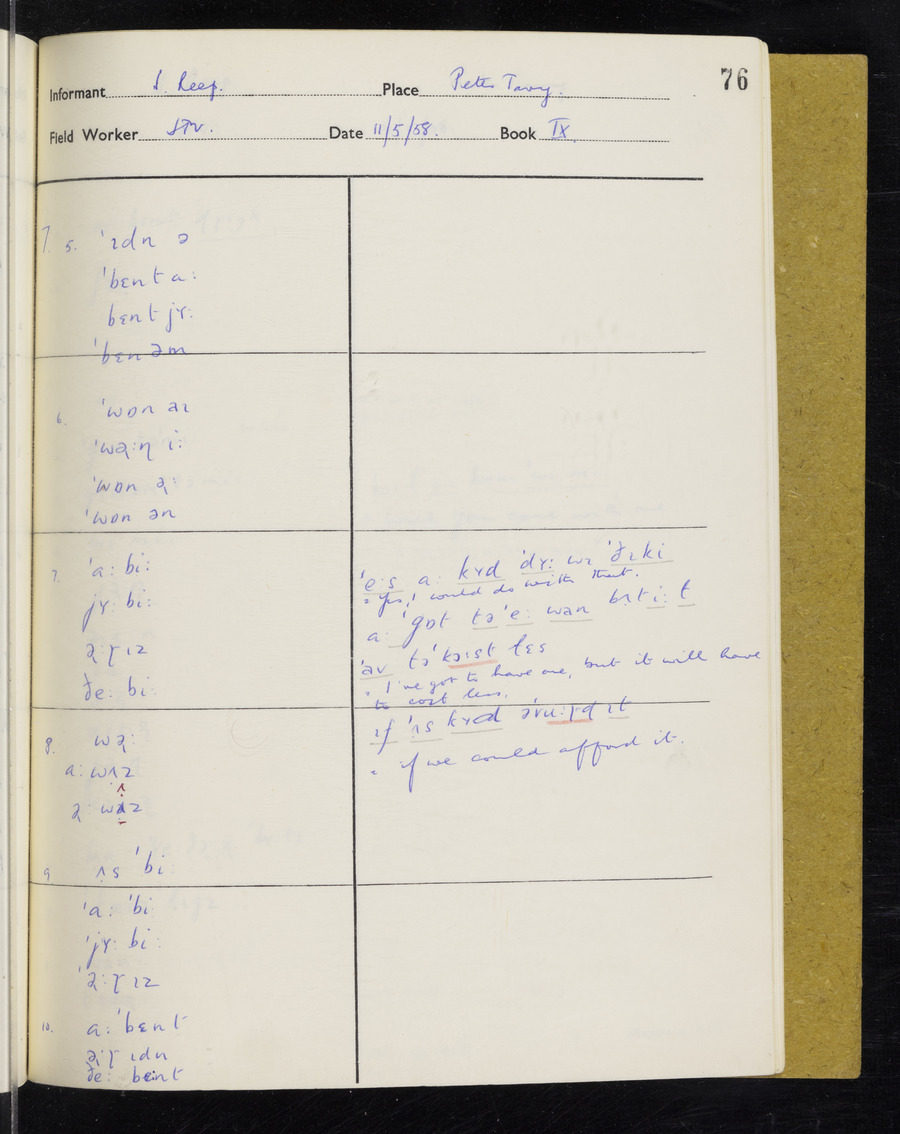 76
Informant S. Reep. Place Peter Tavy.
Field Worker Date 11/5/58. Book IX.
7. 5. ˈɪdn ə
ˈbɛnt a:
bɛnt jʏ:
ˈbɛn əm
6. ˈwɒn aɪ
ˈwəːn i:
ˈwɒn ə:
ˈwɒn ən
7. ˈa: bi:
jʏ: bi:
ɪz
ðe: bi:
8.
a: wʌz
9. ʌs ˈbi:
ˈa: ˈbi:
ˈjʏ: bi:
ɪz
10. a: ˈbɛnt
ɪdn
ðe: bɛint
ˈe:s a: kʏd ˈdʏ: wɪ ˈðɪki
= Yes, I would do with that.
a: ˈgɒt təˈe: wan
ˈav lɛs
= I've got to have one, but it will have
to cost less.
ɪf ˈʌs kʏd ɪt
= if we could afford it.